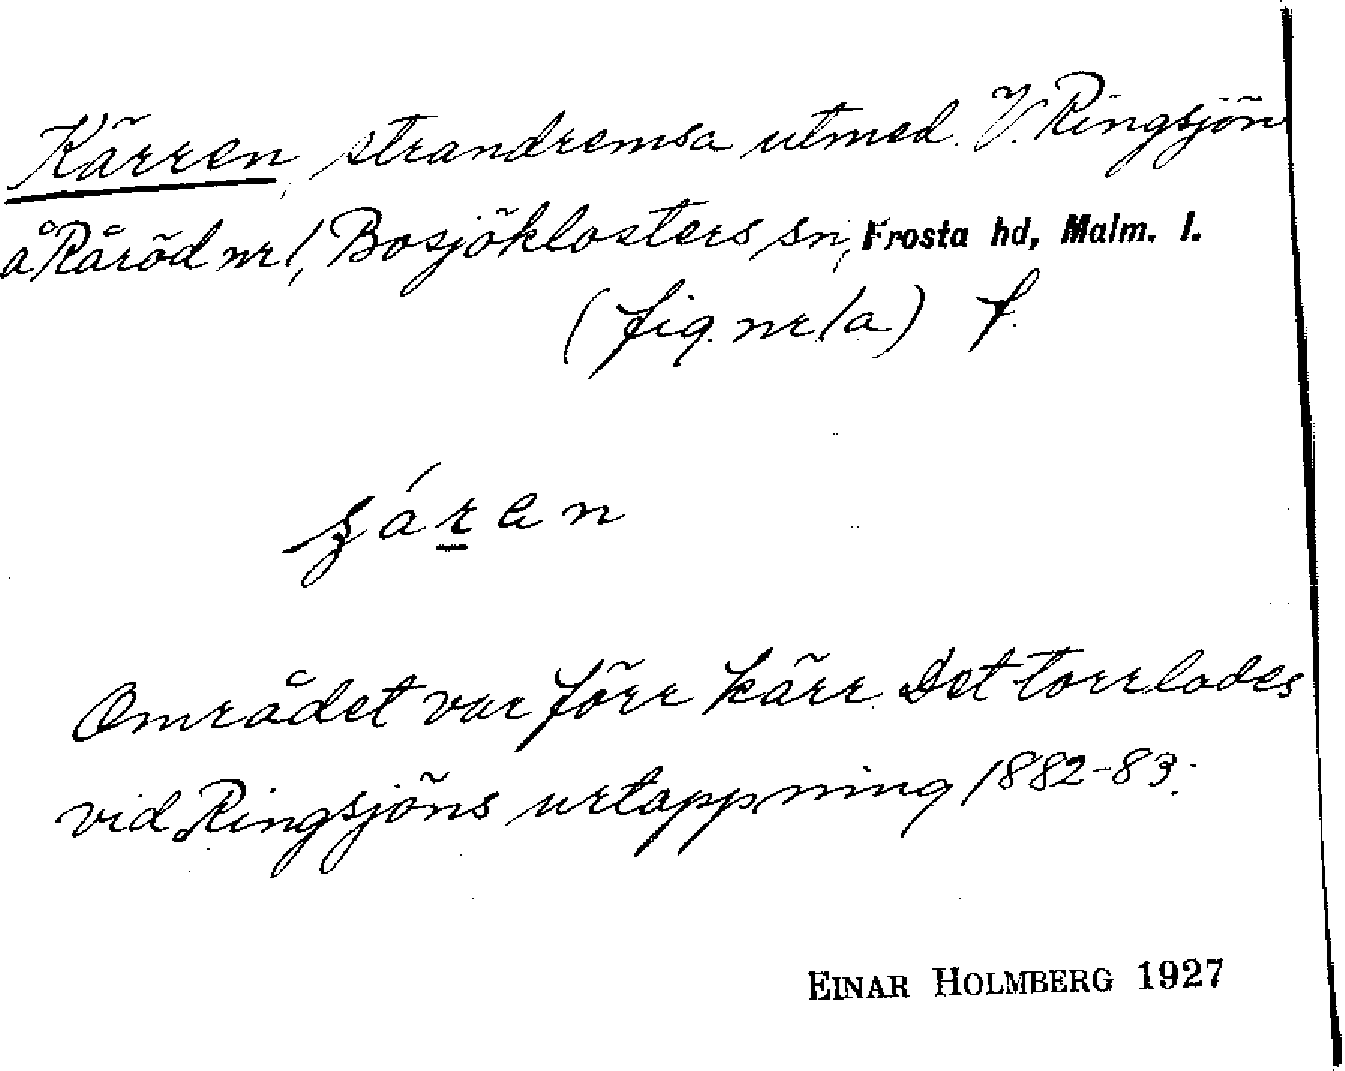 Kärren, strandremsa utmed V. Ringsjön
å Råröd nr 1, Bosjöklosters sn, Frosta hd, Malm. l.
(fig. nr 1a) f.
Området var förr kärr. Det torrlades
vid Ringsjöns urtappning 1882-83.
EINAR HOLMBERG 1927